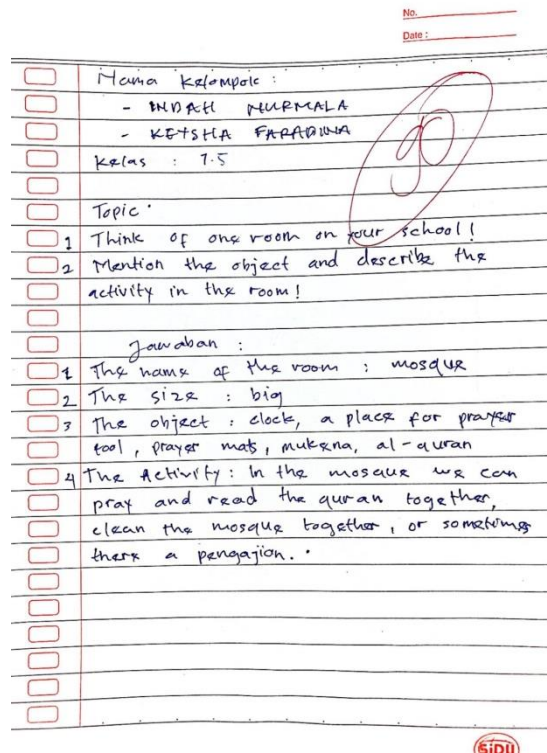 No.
Date :
Nama Kelompok :
- INDAH NURMALA
- KEYSHA FARADINA
Kelas : 7.5
90
Topic :
1 Think of one room on your school!
2 Mention the object and describe the
activity in the room!
Jawaban :
1 The name of the room : mosque
2 The size : big
3 The object : clock, a place for prayer
tool, prayer mats, mukena, al-quran
4 The Activity : In the mosque we can
pray and read the quran together,
clean the mosque together, or sometimes
there a pengajian.
SiDU